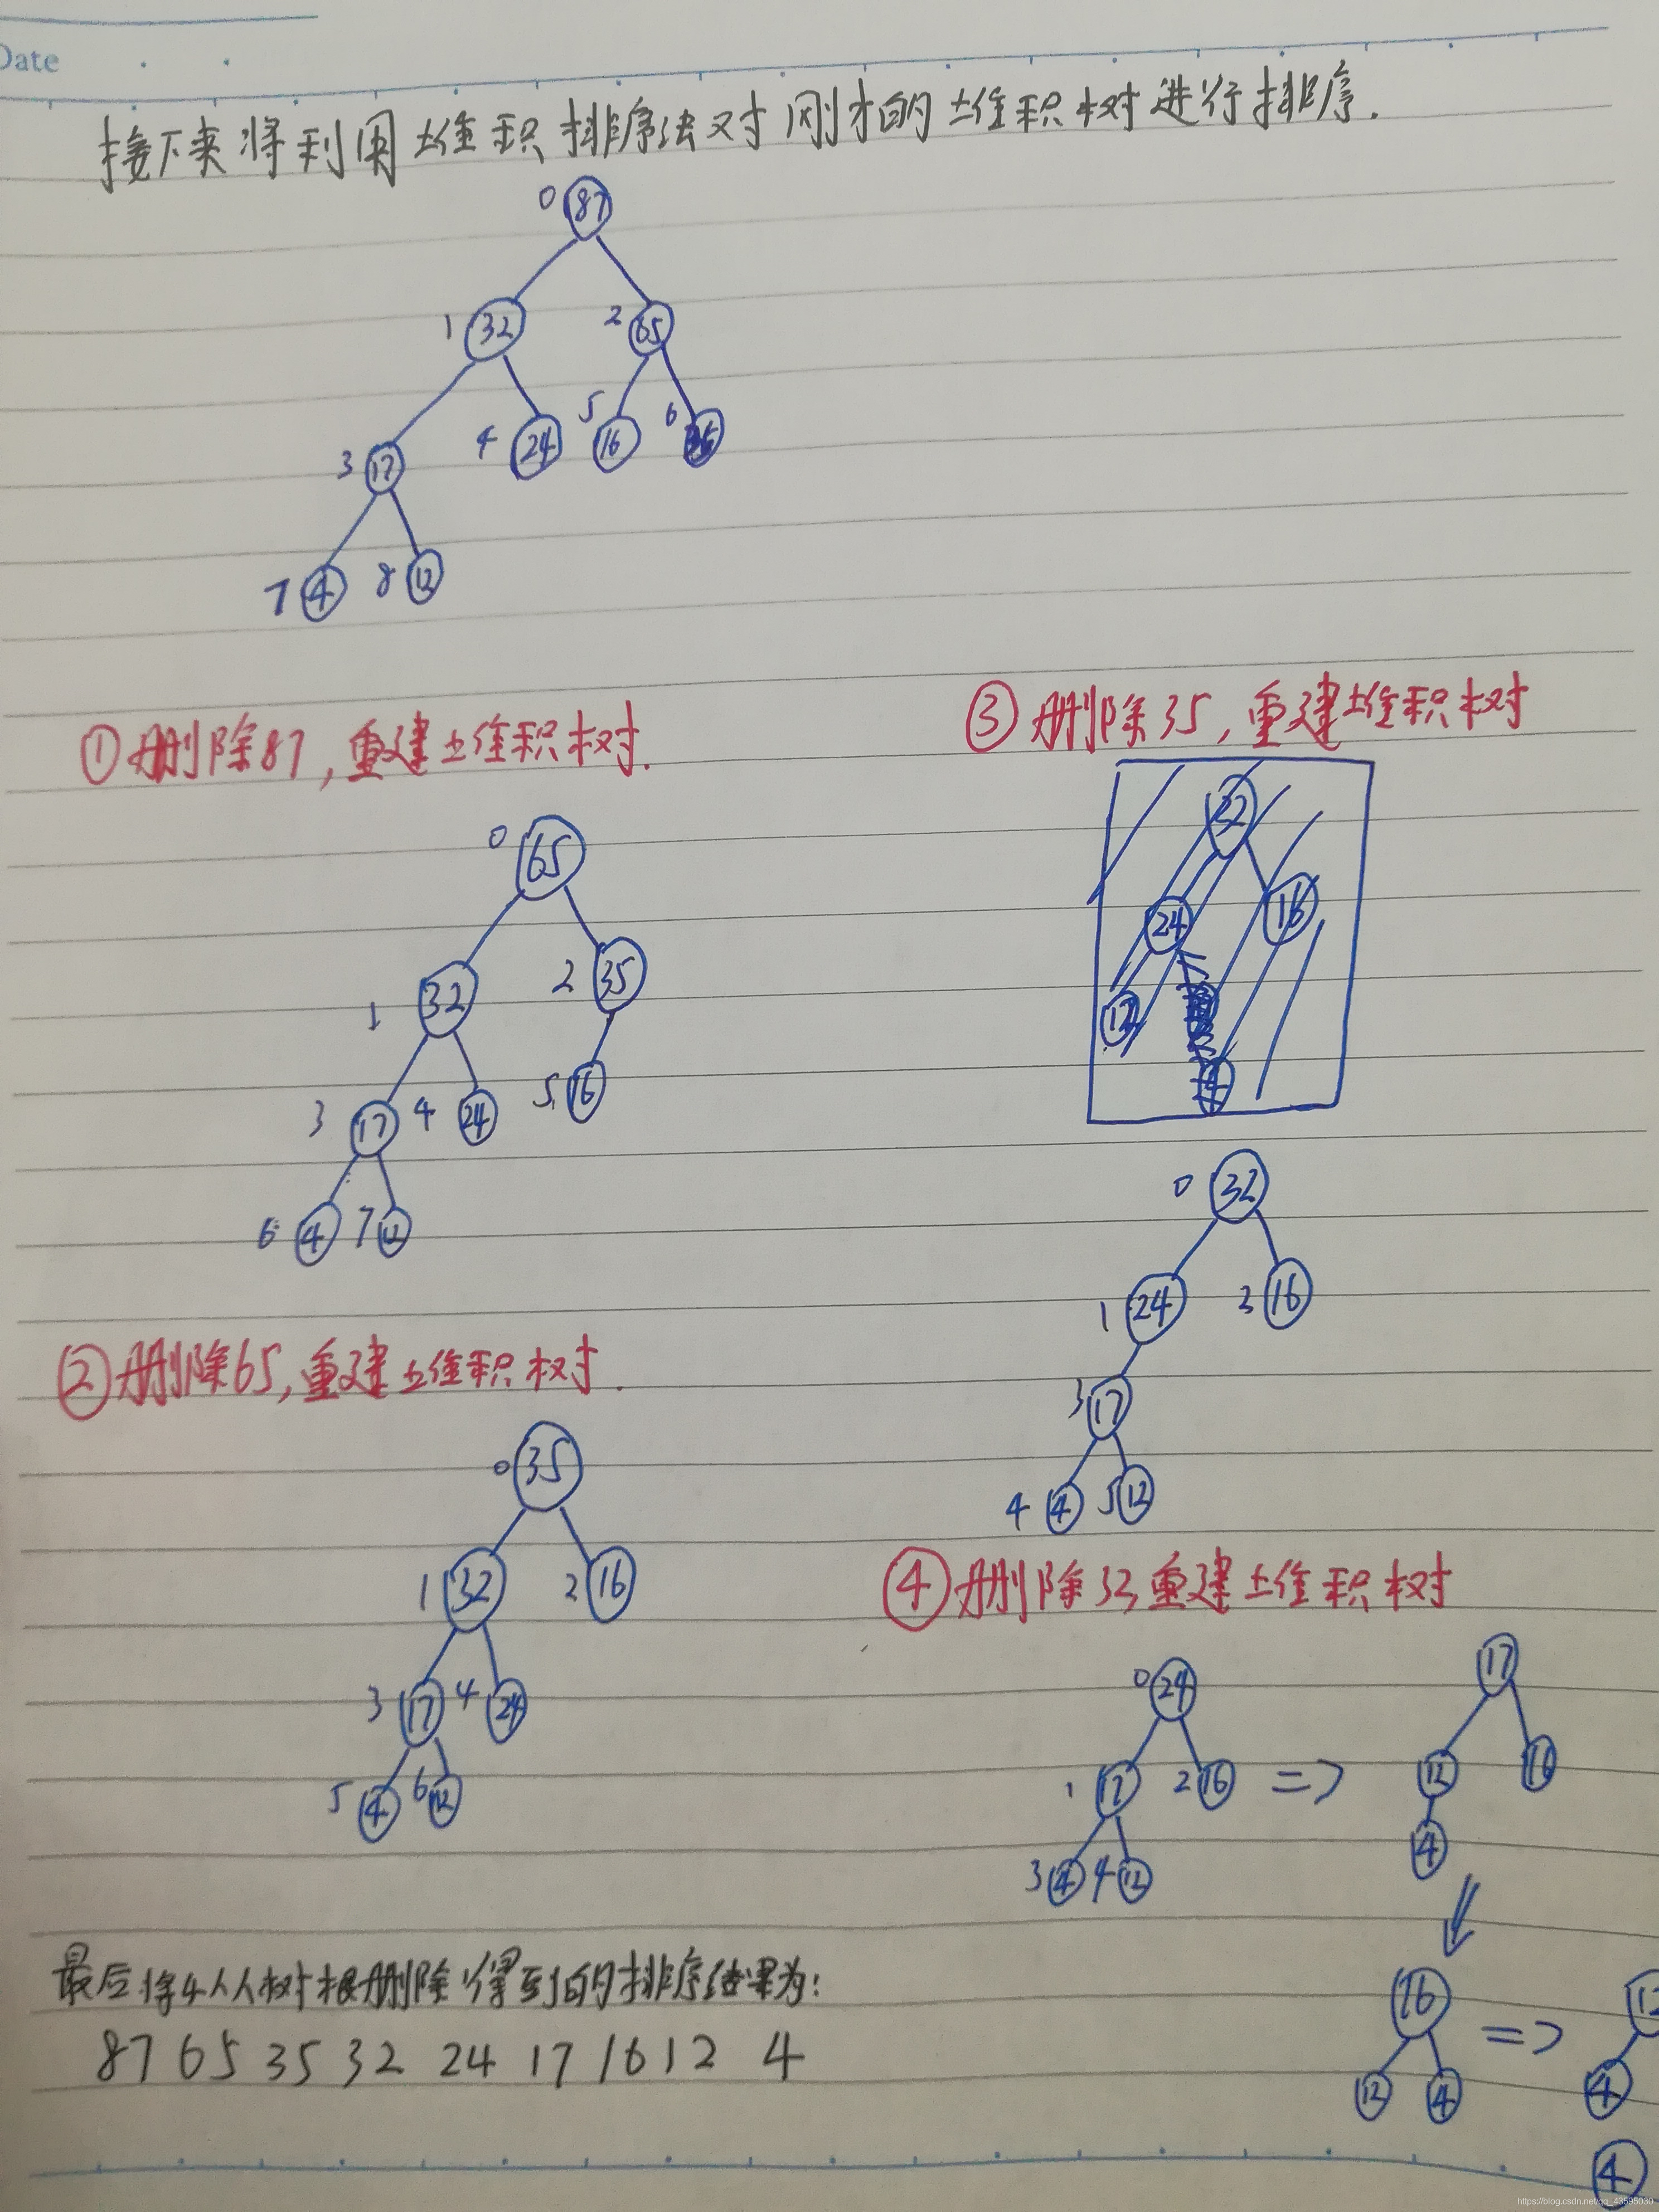 Date
接下来将利用堆积排序法对刚才的堆积树进行排序.
0 87
1 32 2 65
3 17 4 24 5 16 6
7 4 8 12
①删除87,重建堆积树.
0 65
1 32 2 35
3 17 4 24 5 16
6 4 7 12
②删除65,重建堆积树.
0 35
1 32 2 16
3 17 4 24
5 4 6 12
③删除35,重建堆积树
32
24 16
17
4
0 32
1 24 2 16
3 17
4 4 5 12
④删除32重建堆积树
0 24
1 17 2 16
3 4 4 12
=>
17
12 16
4
16
12 4
=>
12
4
4
最后将4从树根删除得到的排序结果为:
87 65 35 32 24 17 16 12 4
https://blog.csdn.net/qq_43595030